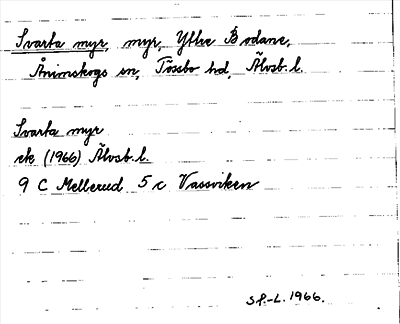 Svarta myr, myr, Yttre Bodane,
Ånimskogs sn, Tössbo hd, Älvsb. l.
Svarta myr
ek (1966) Älvsb. l.
9 C Mellerud 5 c Vassviken
SP.-L. 1966.